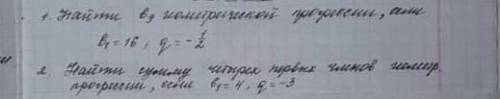 1. Найти b9 геометрической прогрессии, если
b1 = 16 ; q = - 1/2
2. Найти сумму четырех первых членов геометр.
прогрессии, если b1 = 4, q = -3